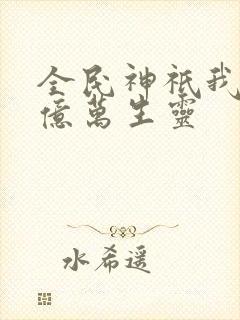 全民神祇我
億萬生靈
水希遥